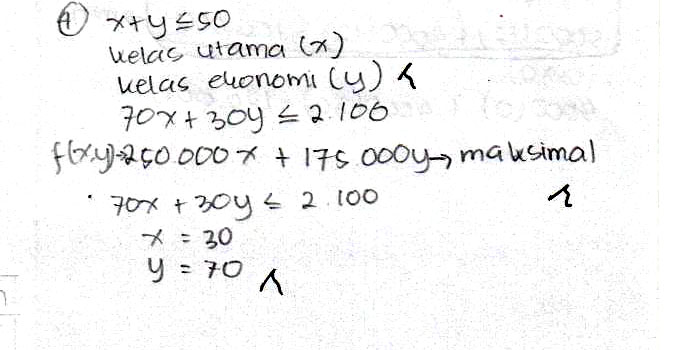 ④ x+y ≤ 50
kelas utama (x)
kelas ekonomi (y)
70x + 30y ≤ 2.100
f(x,y)→250.000x + 175.000y → maksimal
• 70x + 30y ≤ 2.100
x = 30
y = 70